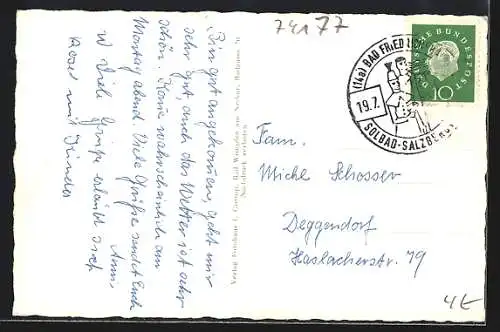 74177
Bin gut angekommen, geht mir
sehr gut, auch das Wetter ist sehr
schön. Komme wahrscheinlich am
Montag abend. Viele Grüße sendet Euch
Anni
Viele Grüße erlaubt sich
Rosel mit Kinder
Verlag Fotohaus Bad Wimpfen am Neckar, Rathaus
Nachdruck verboten
(14a) BAD FRIEDRICHSHALL
19.7.
SOLBAD-SALZBERG
DEUTSCHE BUNDESPOST
10
Fam.
Michl Schosser
Deggendorf
Haslacherstr. 79
4€